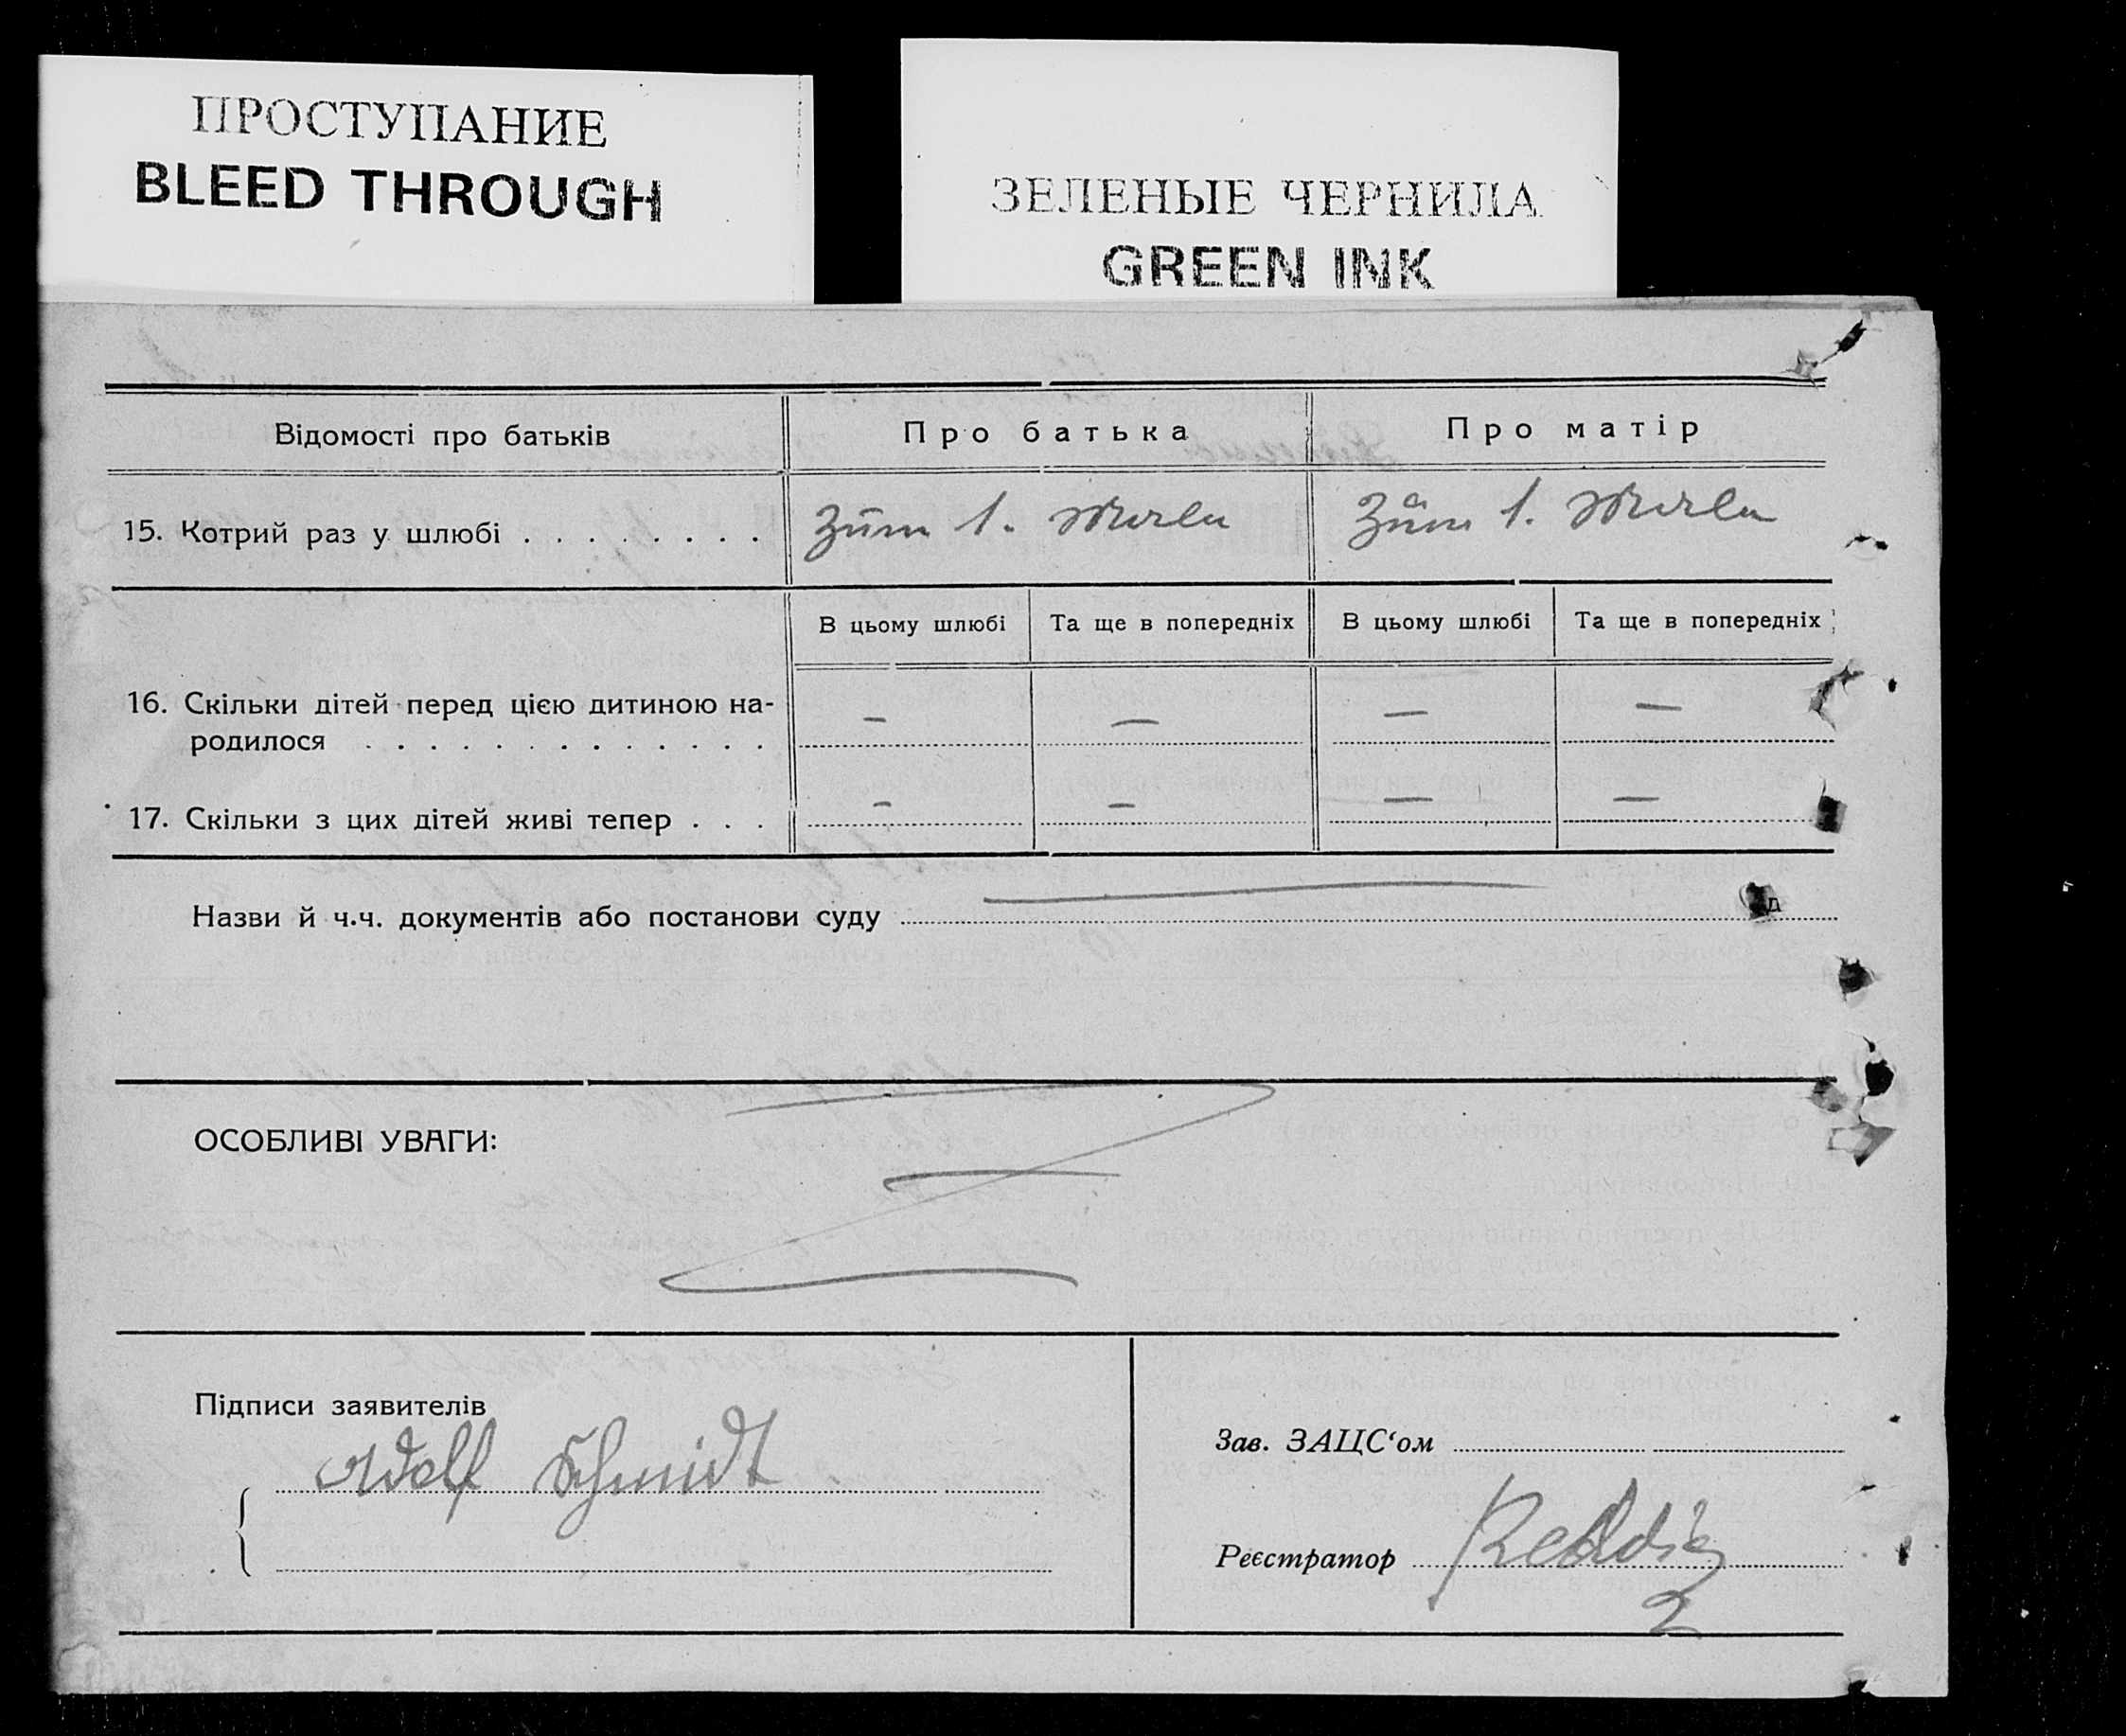 ПРОСТУПАНИЕ
BLEED THROUGH
ЗЕЛЕНЫЕ ЧЕРНИЛА
GREEN INK
Відомості про батьків Про батька Про матір
15. Котрий раз у шлюбі . . . . . . . . Zum 1. Male Zum 1. Male
В цьому шлюбі Та ще в попередніх В цьому шлюбі Та ще в попередніх
16. Скільки дітей перед цією дитиною на-
родилося . . . . . . . . . . . . . — — — —
17. Скільки з цих дітей живі тепер . . . — — — —
Назви й ч.ч. документів або постанови суду
ОСОБЛИВІ УВАГИ:
Підписи заявителів
Adolf Schmidt
Зав. ЗАЦС‘ом
Реєстратор